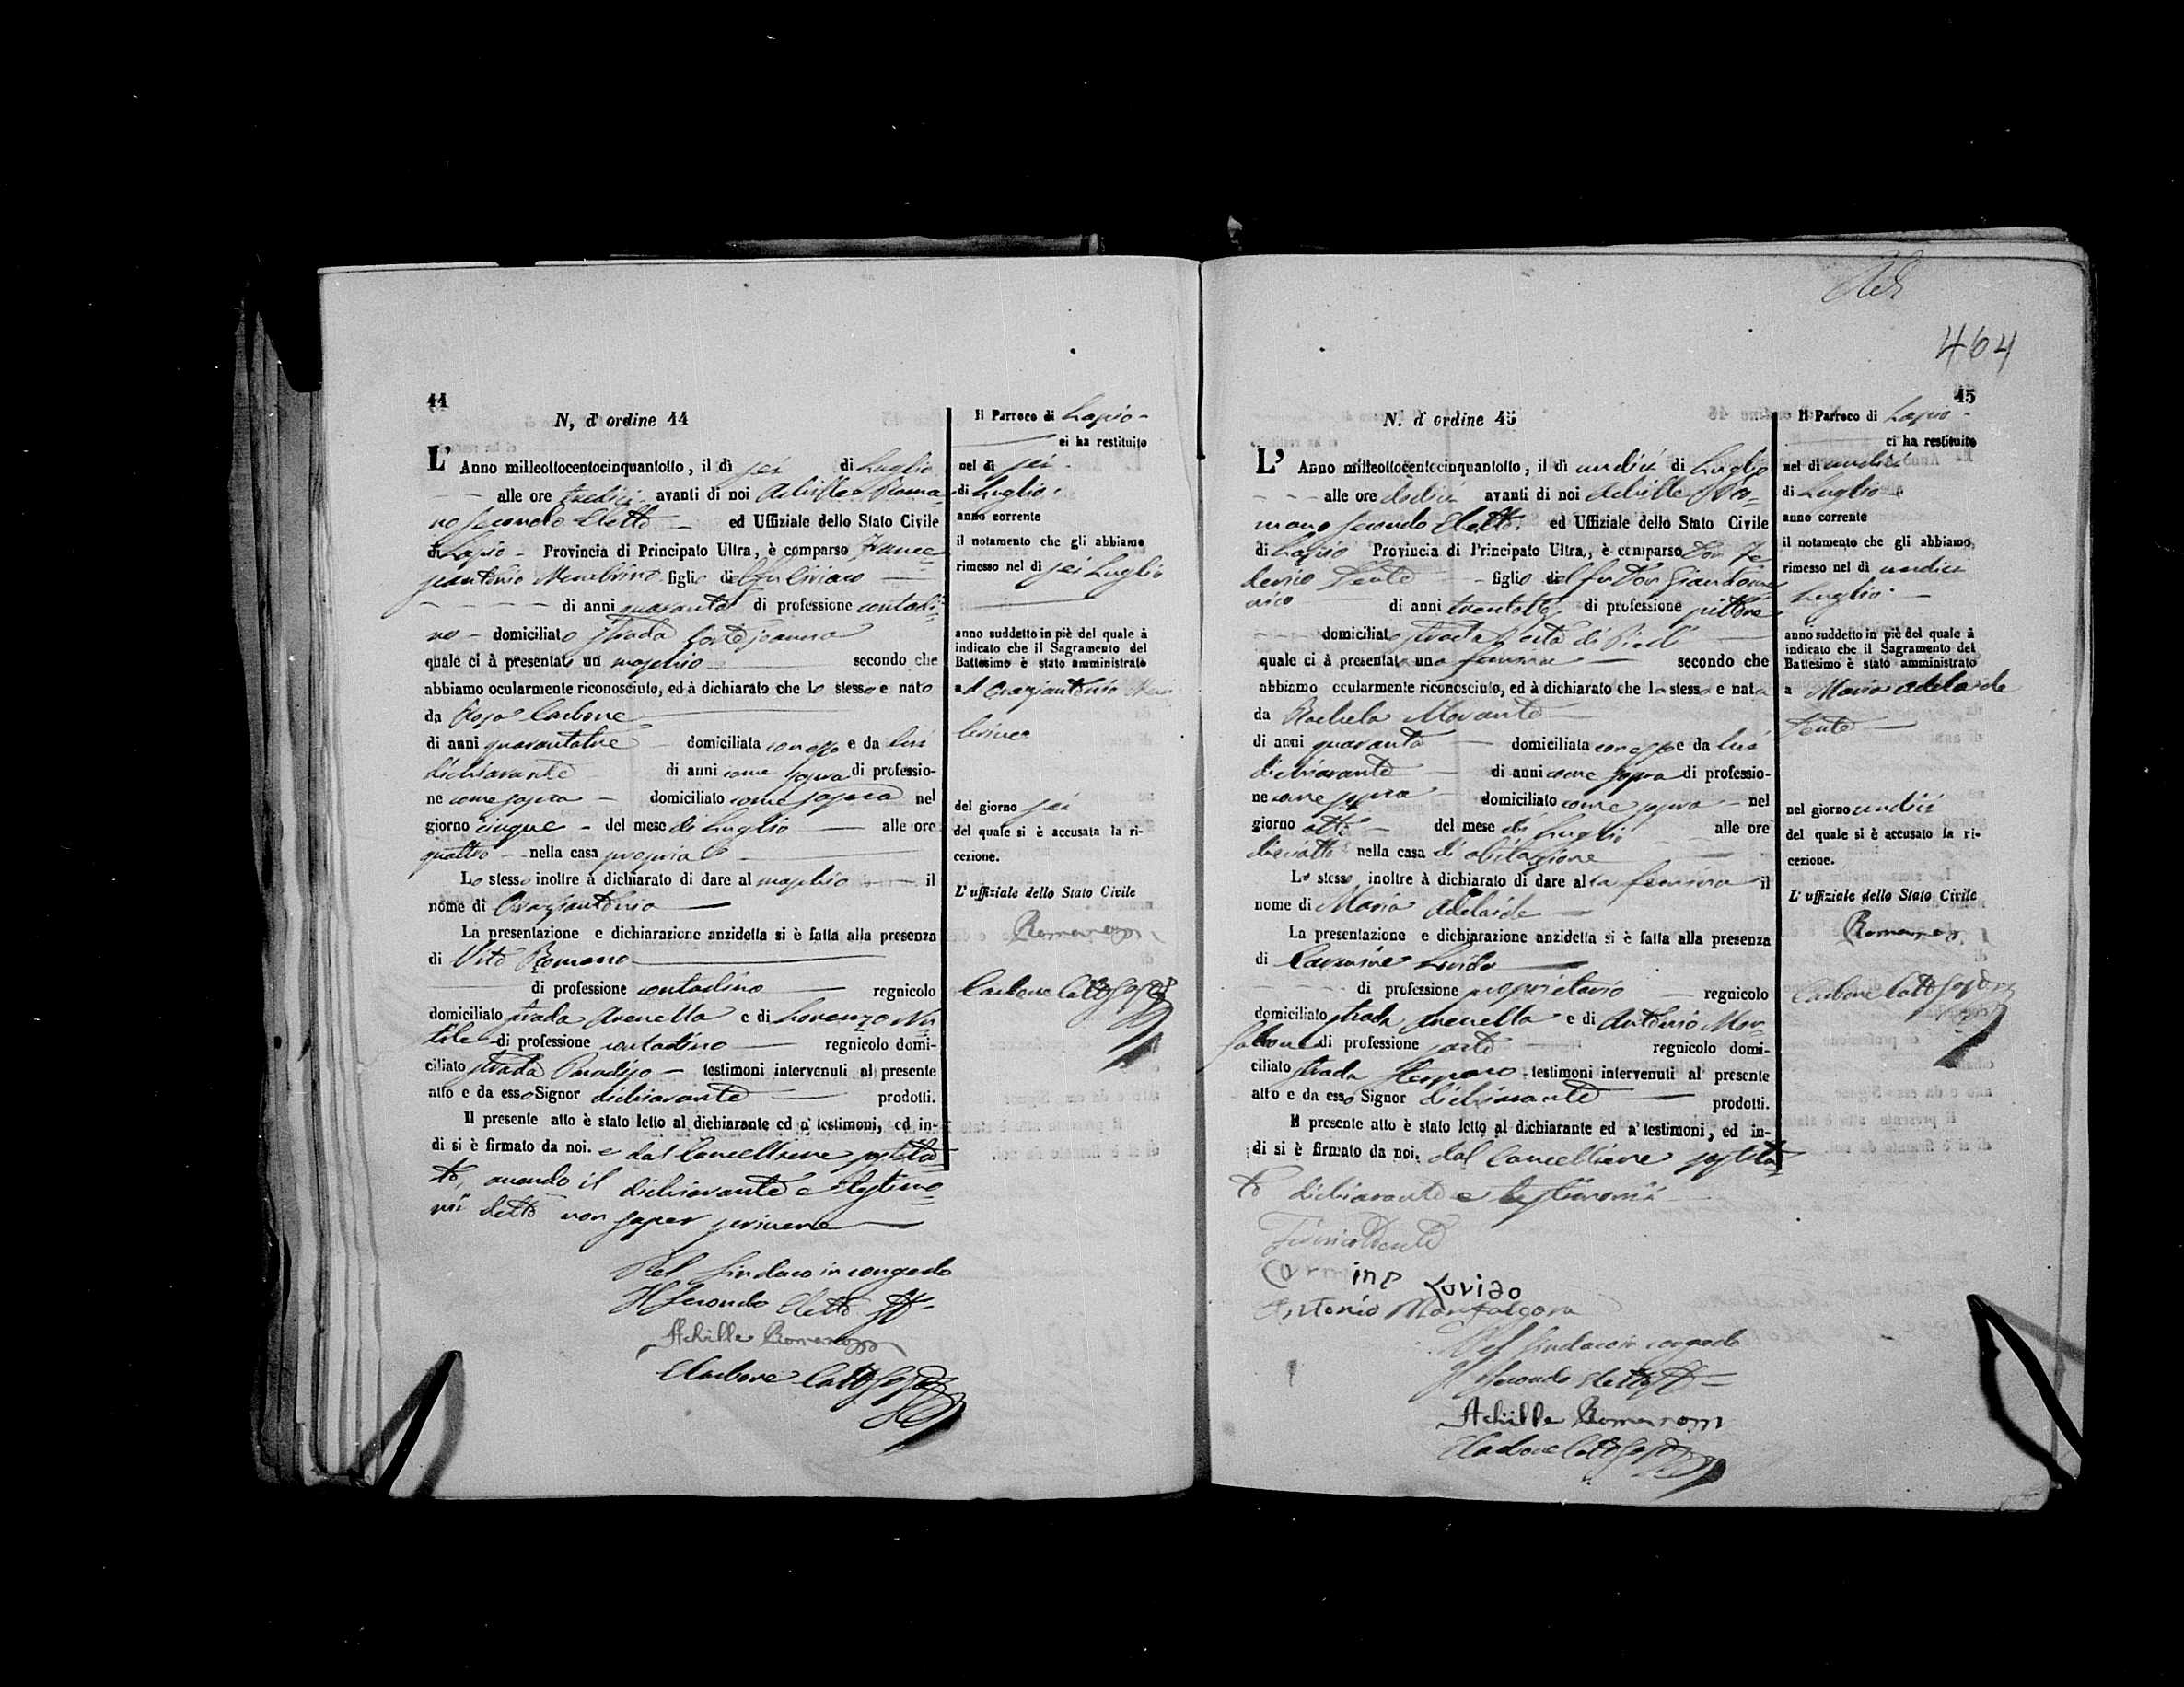 44
N, d' ordine 44
L' Anno milleottocentocinquantotto, il dì sei di Luglio
alle ore tredici avanti di noi Achille Roma-
no secondo Eletto ed Uffiziale dello Stato Civile
di Lapio Provincia di Principato Ultra, è comparso Franc
santonio figlio del fu Ciriaco
di anni quaranta di professione contadi-
no domiciliato strada
quale ci à presentato un maschio secondo che
abbiamo ocularmente riconosciuto, ed à dichiarato che lo stesso e nato
da Rosa Carbone
di anni quarantatre domiciliata con esso e da lui
dichiarante di anni come sopra di professio-
ne come sopra domiciliato come sopra nel
giorno cinque del mese di Luglio alle ore
quattro nella casa propria
Lo stesso inoltre à dichiarato di dare al maschio il
nome di Oraziantonio
La presentazione e dichiarazione anzidetta si è fatta alla presenza
di Vito Romano
di professione contadino regnicolo
domiciliato strada Arenella e di Lorenzo
di professione contadino regnicolo domi-
ciliato strada Paradiso testimoni intervenuti al presente
atto e da esso Signor dichiarante prodotti.
Il presente atto è stato letto al dichiarante ed a' testimoni, ed in-
di si è firmato da noi. e dal Cancelliere sostitu-
to, avendo il dichiarante e testimo-
nii detto non saper scrivere
Pel Sindaco in congedo
Il secondo Eletto
Achille Romano
Carbone
Il Parroco di Lapio
ci ha restituito
nel dì sei
di Luglio
anno corrente
il notamento che gli abbiamo
rimesso nel dì sei Luglio
anno suddetto in piè del quale à
indicato che il Sagramento del
Battesimo è stato amministrato
ad Oraziantonio
del giorno sei
del quale si è accusata la ri-
cezione.
L' uffiziale dello Stato Civile
Romano
Carbone
464
45
N. d' ordine 45
L' Anno milleottocentocinquantotto, il dì undici di Luglio
alle ore dodici avanti di noi Achille Ro-
mano secondo Eletto ed Uffiziale dello Stato Civile
di Lapio Provincia di Principato Ultra, è comparso Don Fe-
derico Tente figlio del fu Don Giandome
nico di anni trentotto di professione pittore
domiciliato strada Porta di Piedi
quale ci à presentato una femina secondo che
abbiamo ocularmente riconosciuto, ed à dichiarato che la stessa e nata
da Rachela Morante
di anni quaranta domiciliata con esso e da lui
dichiarante di anni come sopra di professio-
ne come sopra domiciliato come sopra nel
giorno otto del mese di Luglio alle ore
dieciotto nella casa di abitazione
Lo stesso inoltre à dichiarato di dare alla femina il
nome di Maria Adelaide
La presentazione e dichiarazione anzidetta si è fatta alla presenza
di Carmine
di professione proprietario regnicolo
domiciliato strada Arenella e di Antonio Mon-
falcone di professione sarto regnicolo domi-
ciliato strada testimoni intervenuti al presente
atto e da esso Signor dichiarante prodotti.
Il presente atto è stato letto al dichiarante ed a' testimoni, ed in-
di si è firmato da noi, dal Cancelliere sostitu-
to dichiarante e testimonii
Carmine
Antonio Monfalcone
Pel Sindaco in congedo
Il secondo Eletto
Achille Romano
Carbone
Il Parroco di Lapio
ci ha restituito
nel dì undici
di Luglio
anno corrente
il notamento che gli abbiamo
rimesso nel dì undici
Luglio
anno suddetto in piè del quale à
indicato che il Sagramento del
Battesimo è stato amministrato
a Maria Adelaide
Tente
nel giorno undici
del quale si è accusato la ri-
cezione.
L' uffiziale dello Stato Civile
Romano
Carbone